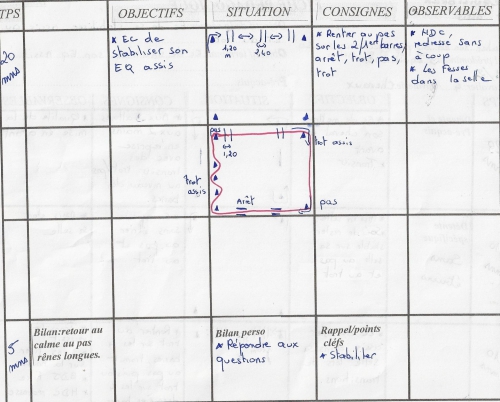 TPS
OBJECTIFS
SITUATION
CONSIGNES
OBSERVABLES
20
mns
* EC de
stabiliser son
EQ assis
1,20
m
2,40
* Rentrer au pas
sur les 2/1ère barres,
arrêt, trot, pas,
trot
* HDC,
redresse sans
à coup
* Les fesses
dans la selle
pas
1,20
trot assis
trot
assis
Arrêt
pas
5
mns
Bilan:retour au
calme au pas
rênes longues.
Bilan perso
* Répondre aux
questions
Rappel/points
cléfs
* Stabiliter